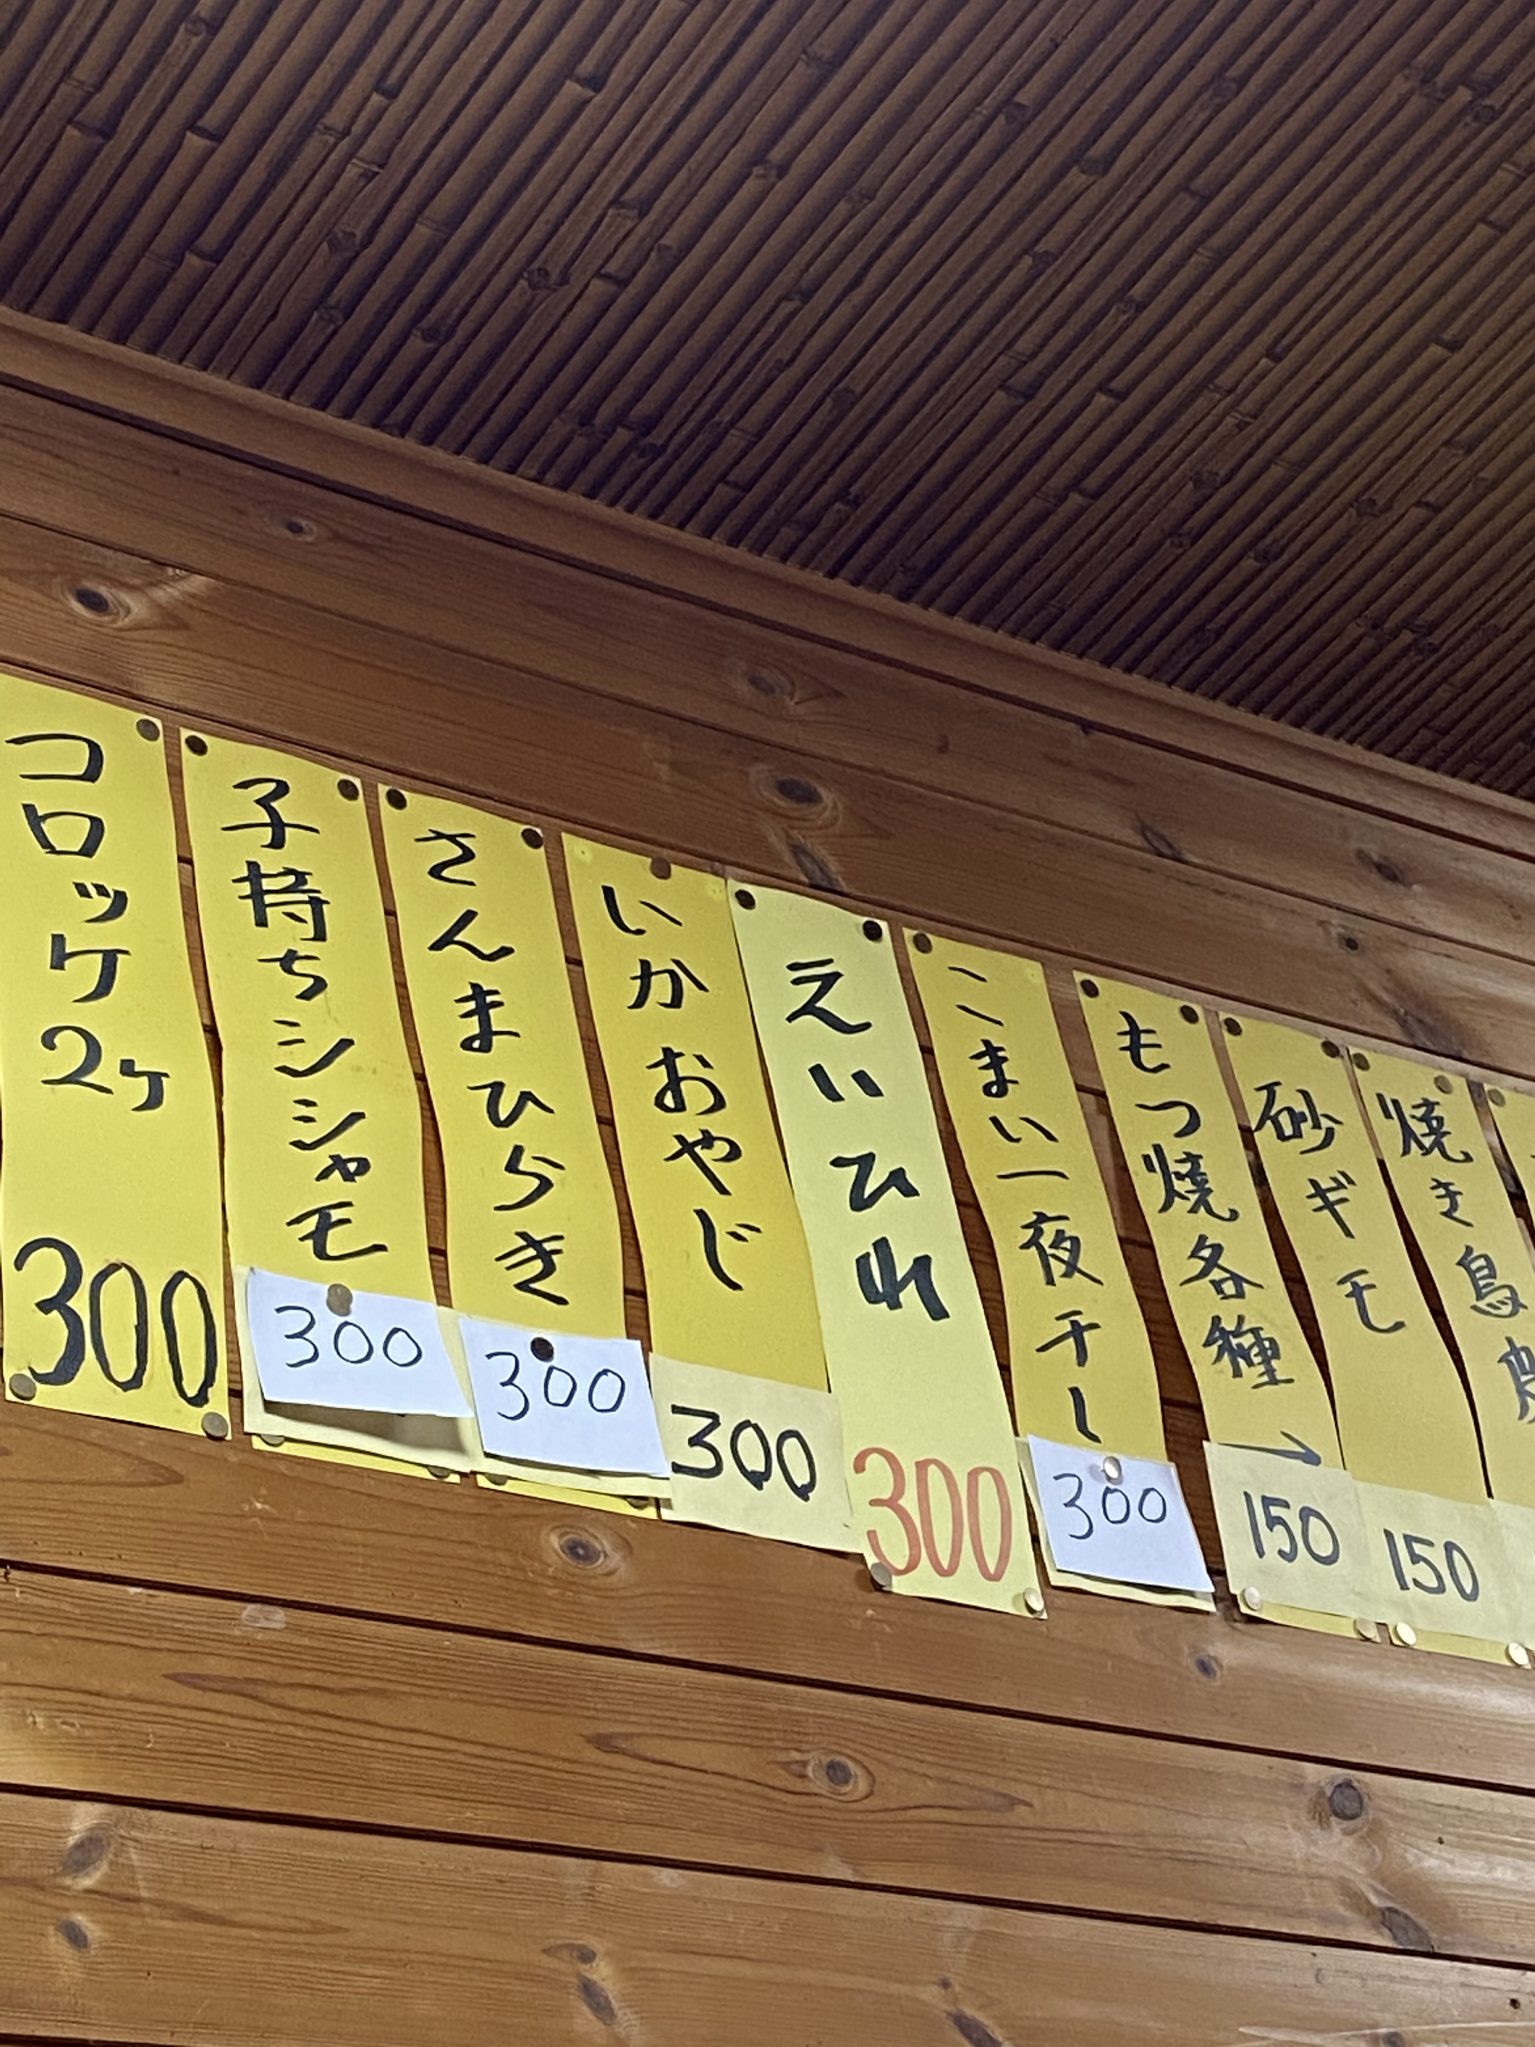 コロッケ2ヶ
300
子持ちシシャモ
300
さんまひらき
300
いかおやじ
300
えいひれ
300
こまい一夜干し
300
もつ焼各種→
150
砂ギモ
150
焼き鳥